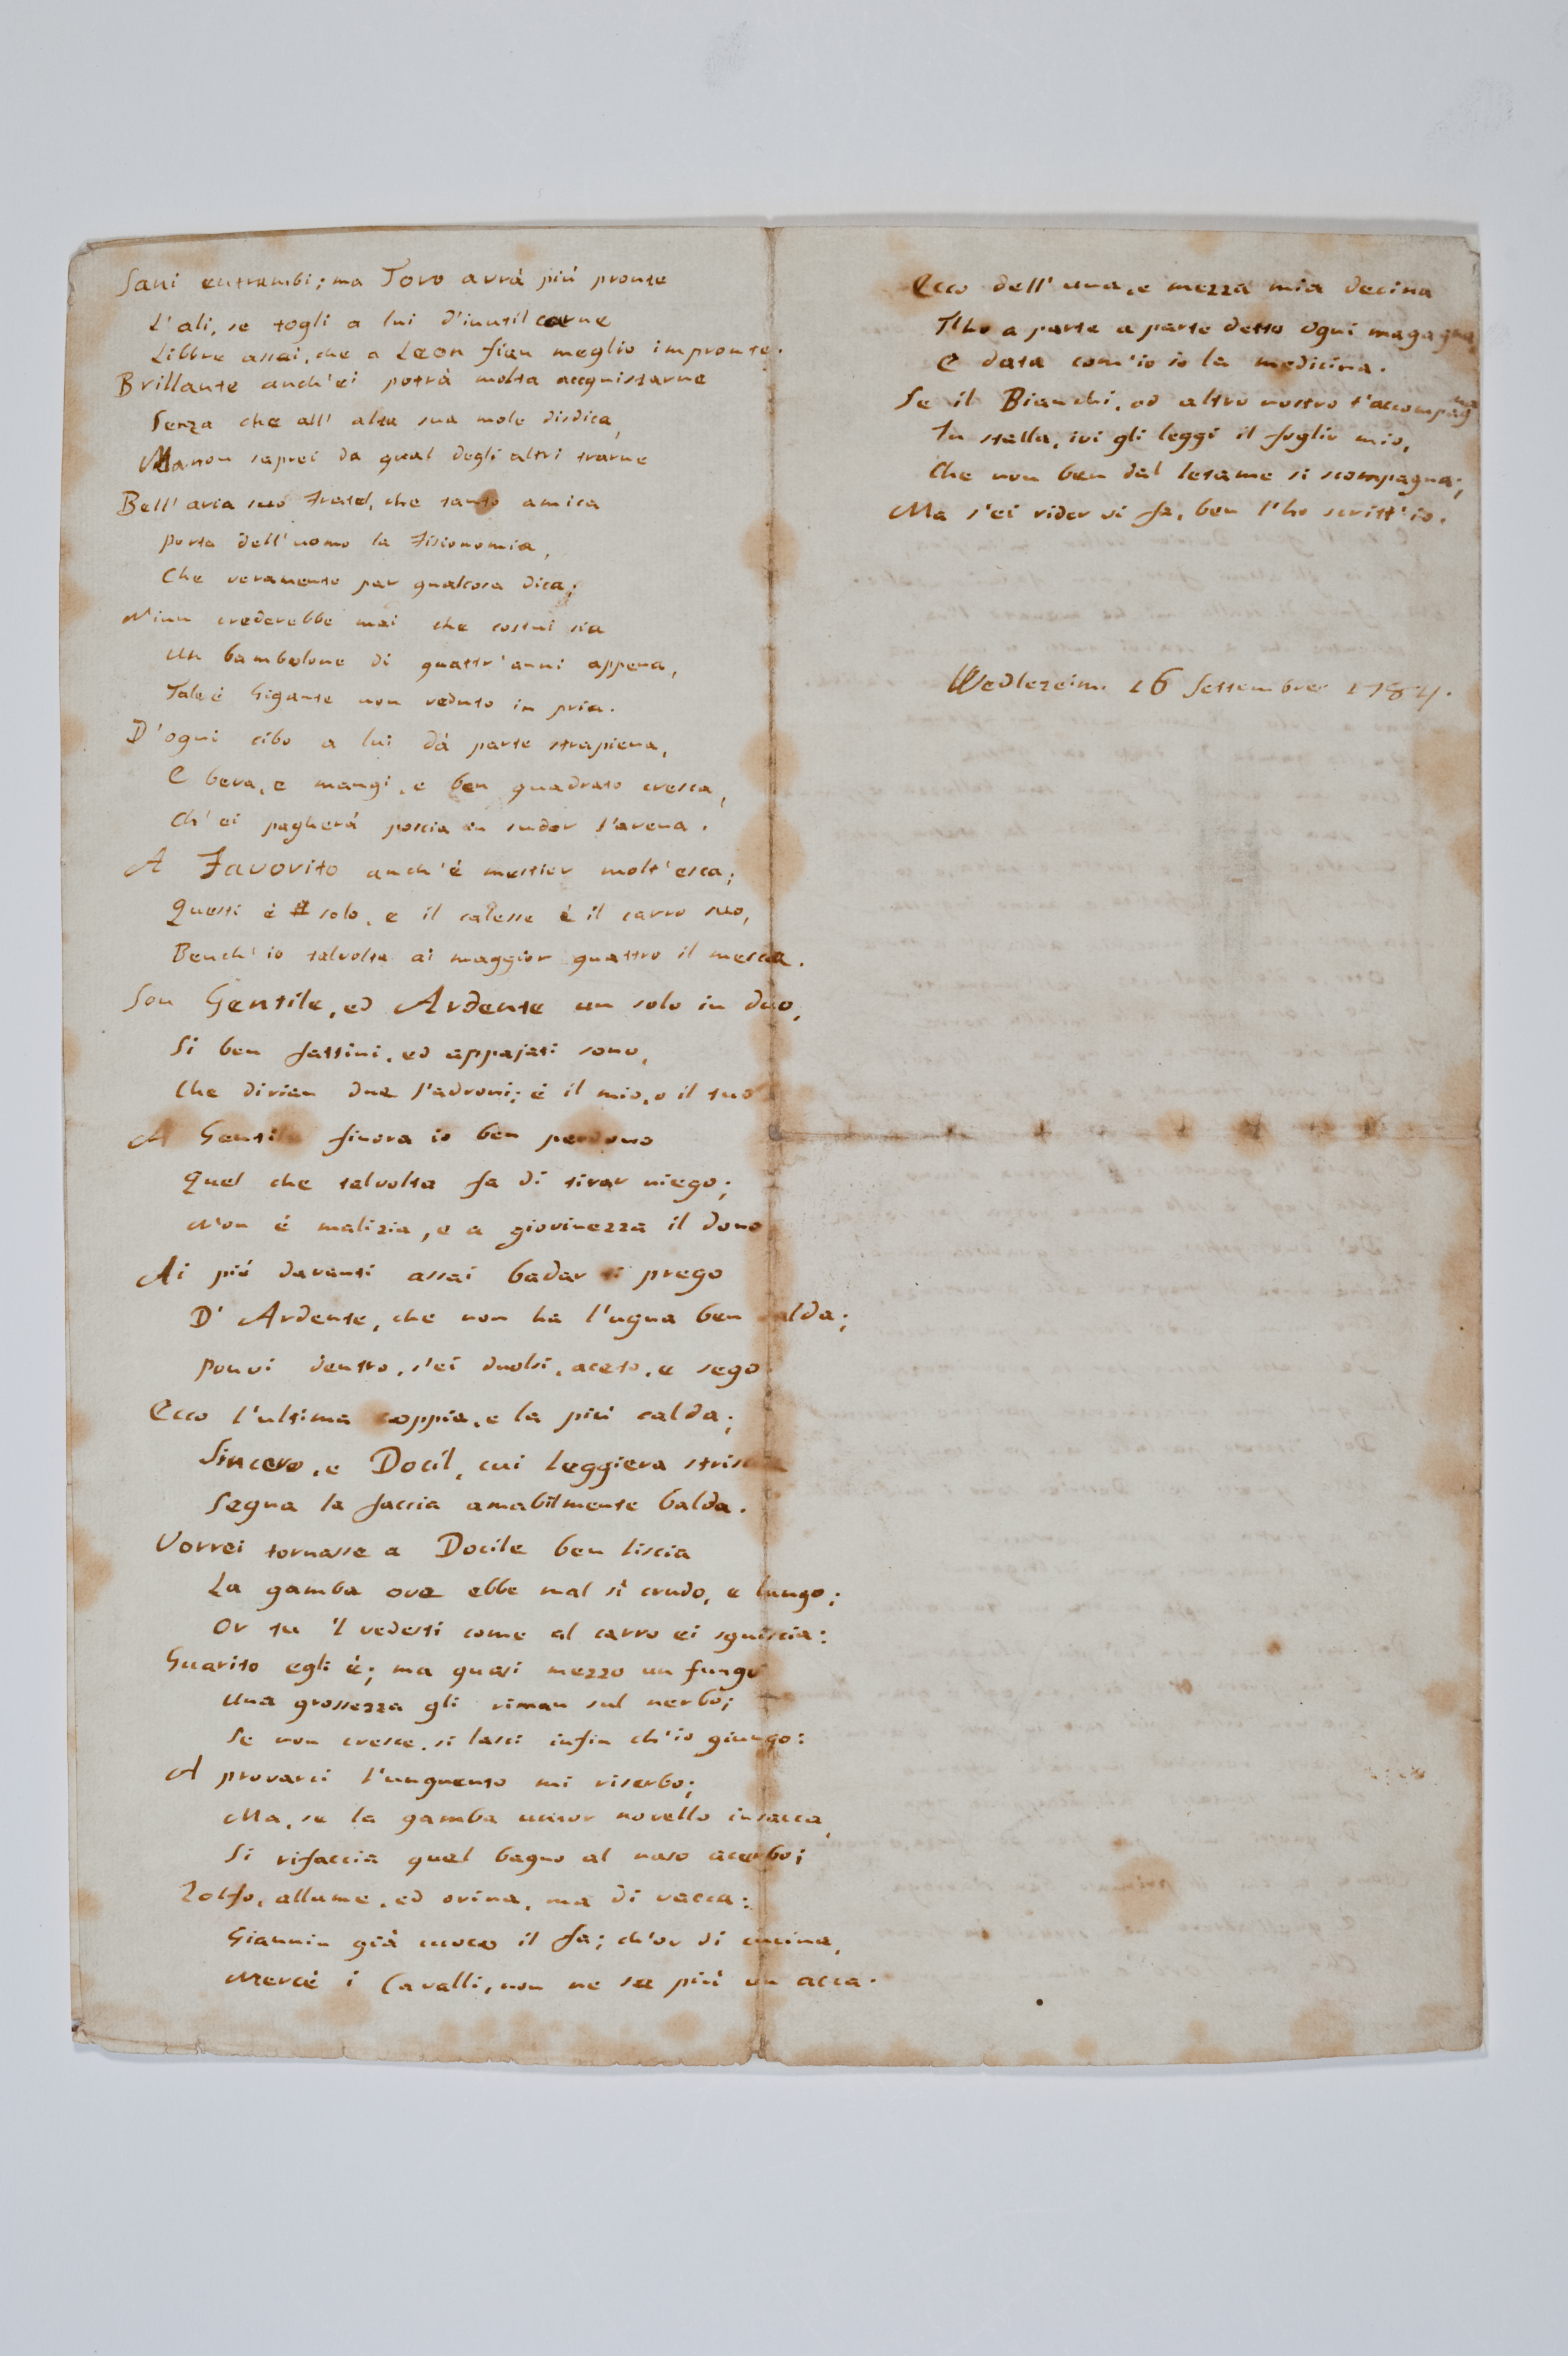 Sani entrambi; ma Toro avrà più pronte
L'ali, se togli a lui d'inutil carne
Libbre assai, che a Leon fian meglio impronte.
Brillante anch'ei potrà molta accquistarne
Senza che all' alta sua mole disdica,
Ma non saprei da qual degli altri trarne
Bell'aria suo Fratel, che tanto amica
Porta dell'uomo la Fisionomia,
Che veramente par qualcosa dica;
Niun crederebbe mai che costui sia
Un bambolone di quattr'anni appena,
Tale è Gigante non veduto in pria.
D'ogni cibo a lui dà parte strapiena,
E beva, e mangi, e ben quadrato cresca,
Ch'ei pagherà poscia in sudor l'avena.
A Favorito anch'è mestier molt'esca;
Questi è solo, e il calesse è il carro suo,
Bench'io talvolta ai maggior quattro il mesca.
Son Gentile, ed Ardente un solo in duo,
Si ben fattini, ed appajati sono,
Che dirian due Padroni; è il mio, o il tuo
A Gentile finora io ben perdono
Quel che talvolta fa di tirar niego;
Non è malizia, e a giovinezza il dono
Ai piè davanti assai badar ti prego
D' Ardente, che non ha l'ugna ben salda;
Ponvi dentro, s'ei duolsi, aceto, e sego
Ecco l'ultima coppia, e la più calda;
Sincero, e Docil, cui leggiera striscia
Segna la faccia amabilmente balda.
Vorrei tornasse a Docile ben liscia
La gamba ove ebbe mal sì crudo, e lungo;
Or tu 'l vedesti come al carro ei sguiscia:
Guarito egli è; ma quasi mezzo un fungo
Una grossezza gli riman sul nerbo;
Se non cresce, si lasci infin ch'io giungo:
A provarci l'unguento mi riserbo;
Ma, se la gamba umor novello insacca,
Si rifaccia quel bagno al naso acerbo;
Zolfo, allume, ed orina, ma di vacca:
Giannin già cuoco il fa; ch'or di cucina,
Mercè i Cavalli, non ne sa più un acca.
Ecco dell'una, e mezza mia decina
T'ho a parte a parte detto ogni magagna,
E data com'io so la medicina.
Se il Bianchi, od altro nostro t'accompagna
In stalla, ivi gli leggi il foglio mio,
Che non ben dal letame si scompagna;
Ma s'ei rider vi fa, ben l'ho scritt'io.
16 Settembre 1784.